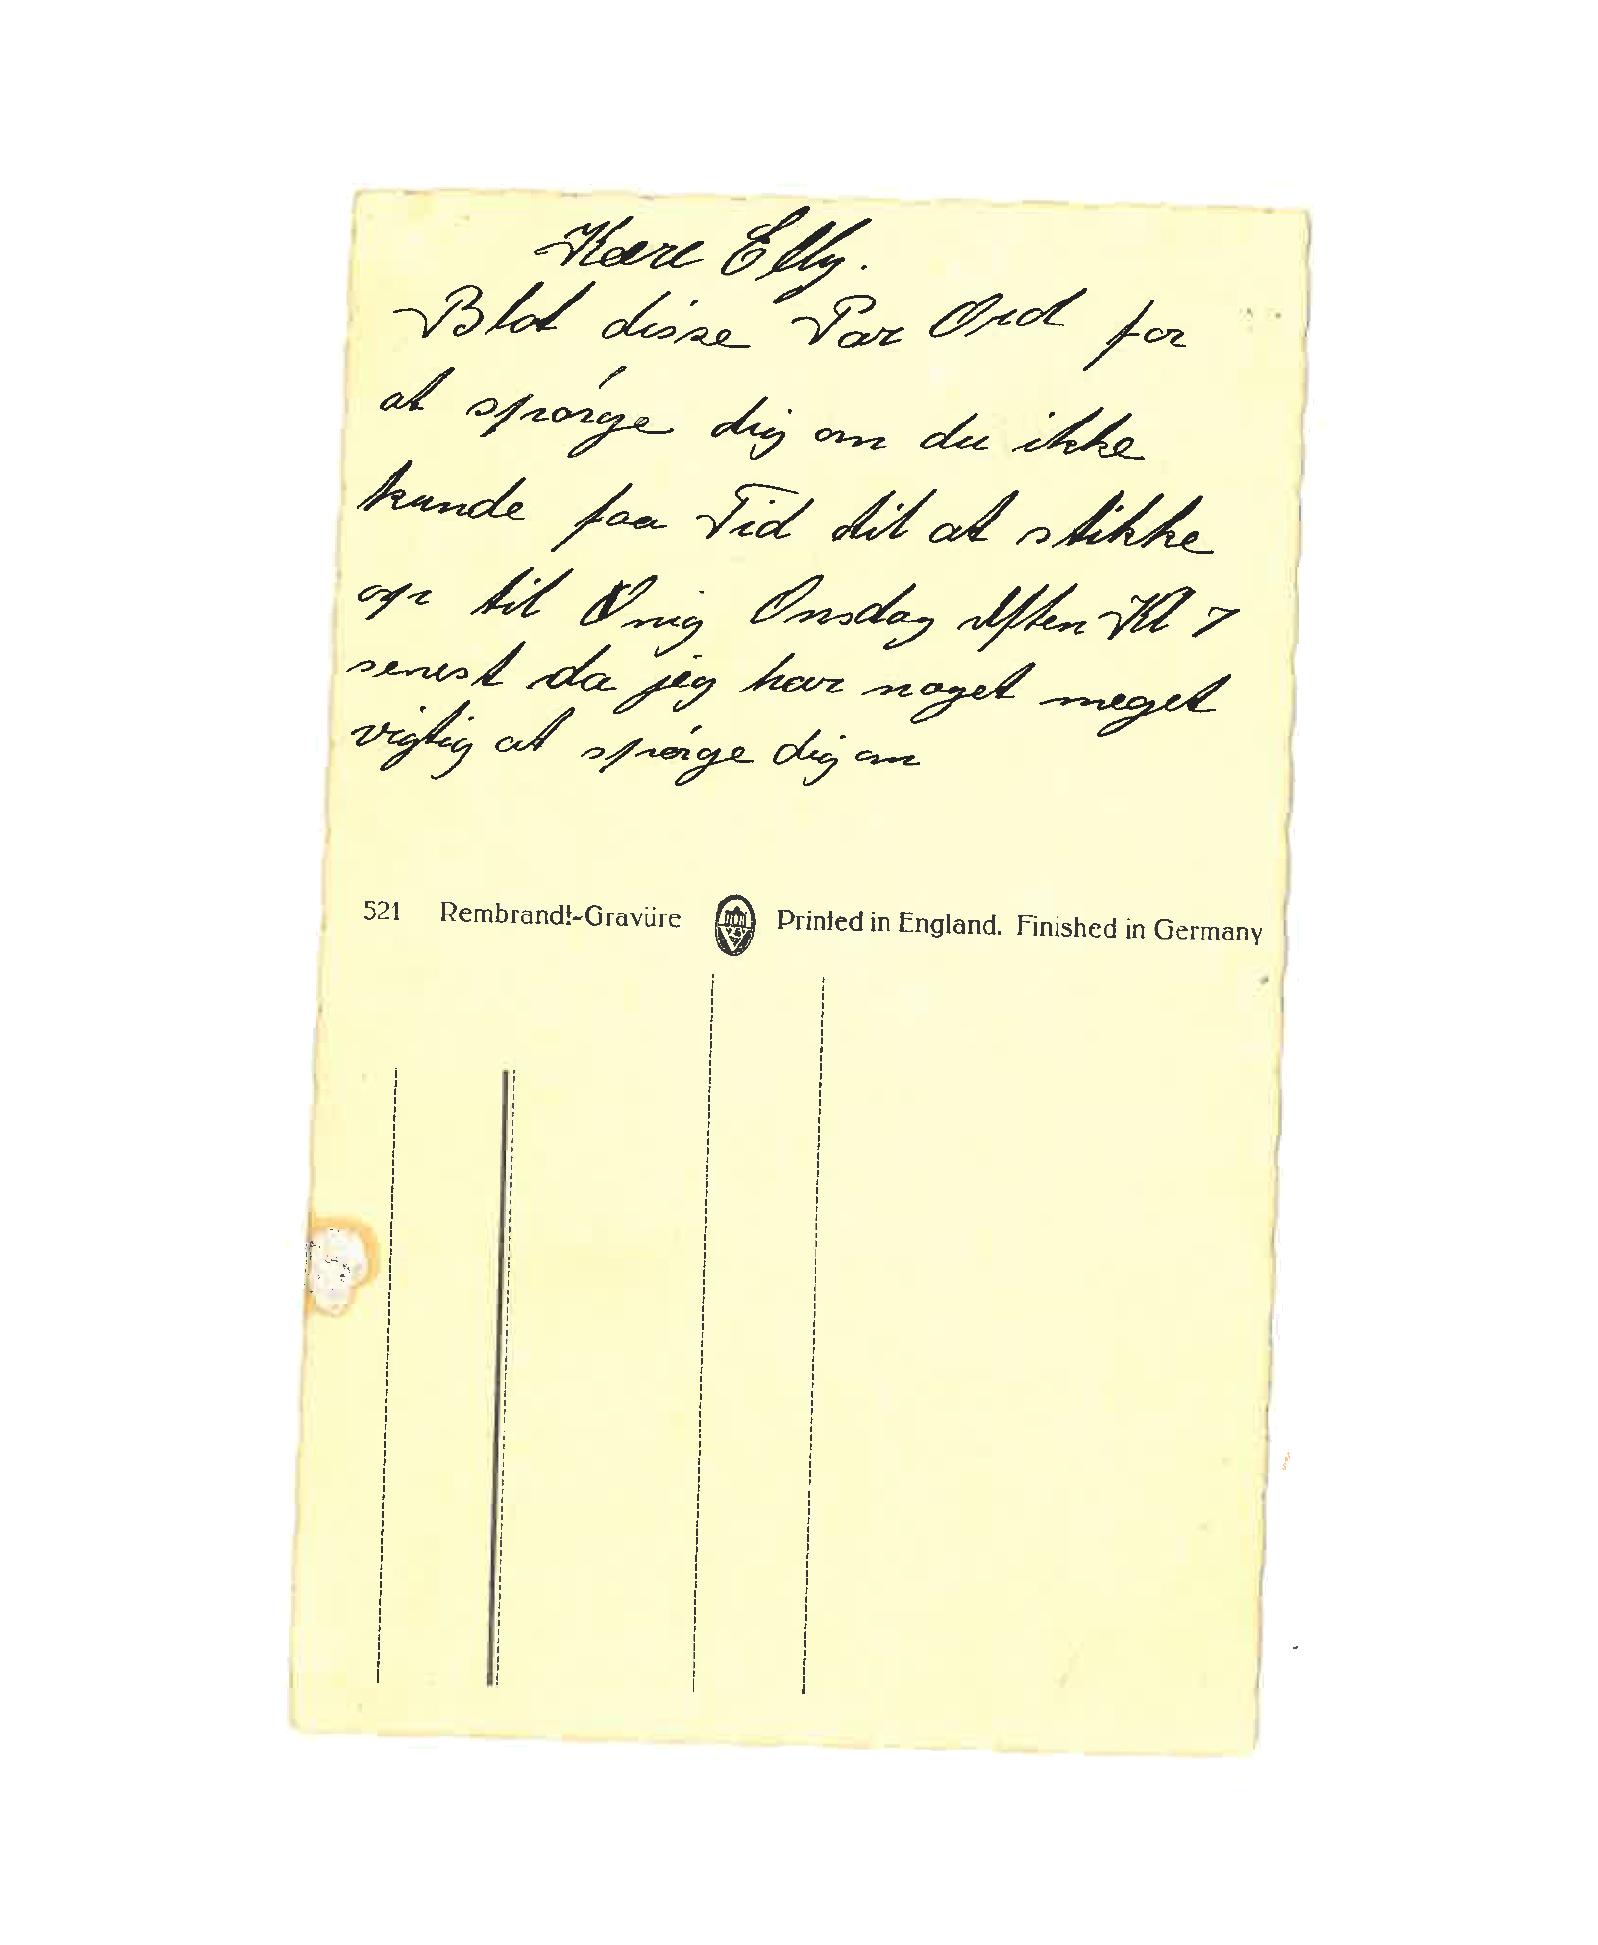 Kære Elly.
Blot disse Par Ord for
at spørge dig om du ikke
kunde faa Tid til at stikke
op til mig Onsdag Aften Kl 7
senest da jeg har noget meget
vigtig at spørge dig om
521 Rembrandt-Gravüre Printed in England. Finished in Germany